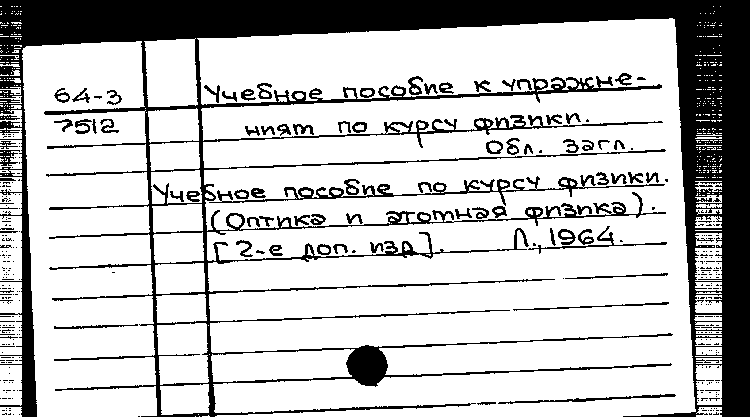 64-3 Учебное пособие к упражне-
7512 ниям по курсу физики.
Обл. загл.
Учебное пособие по курсу физики.
(Оптика и атомная физика).
[2-е доп. изд]. Л., 1964.